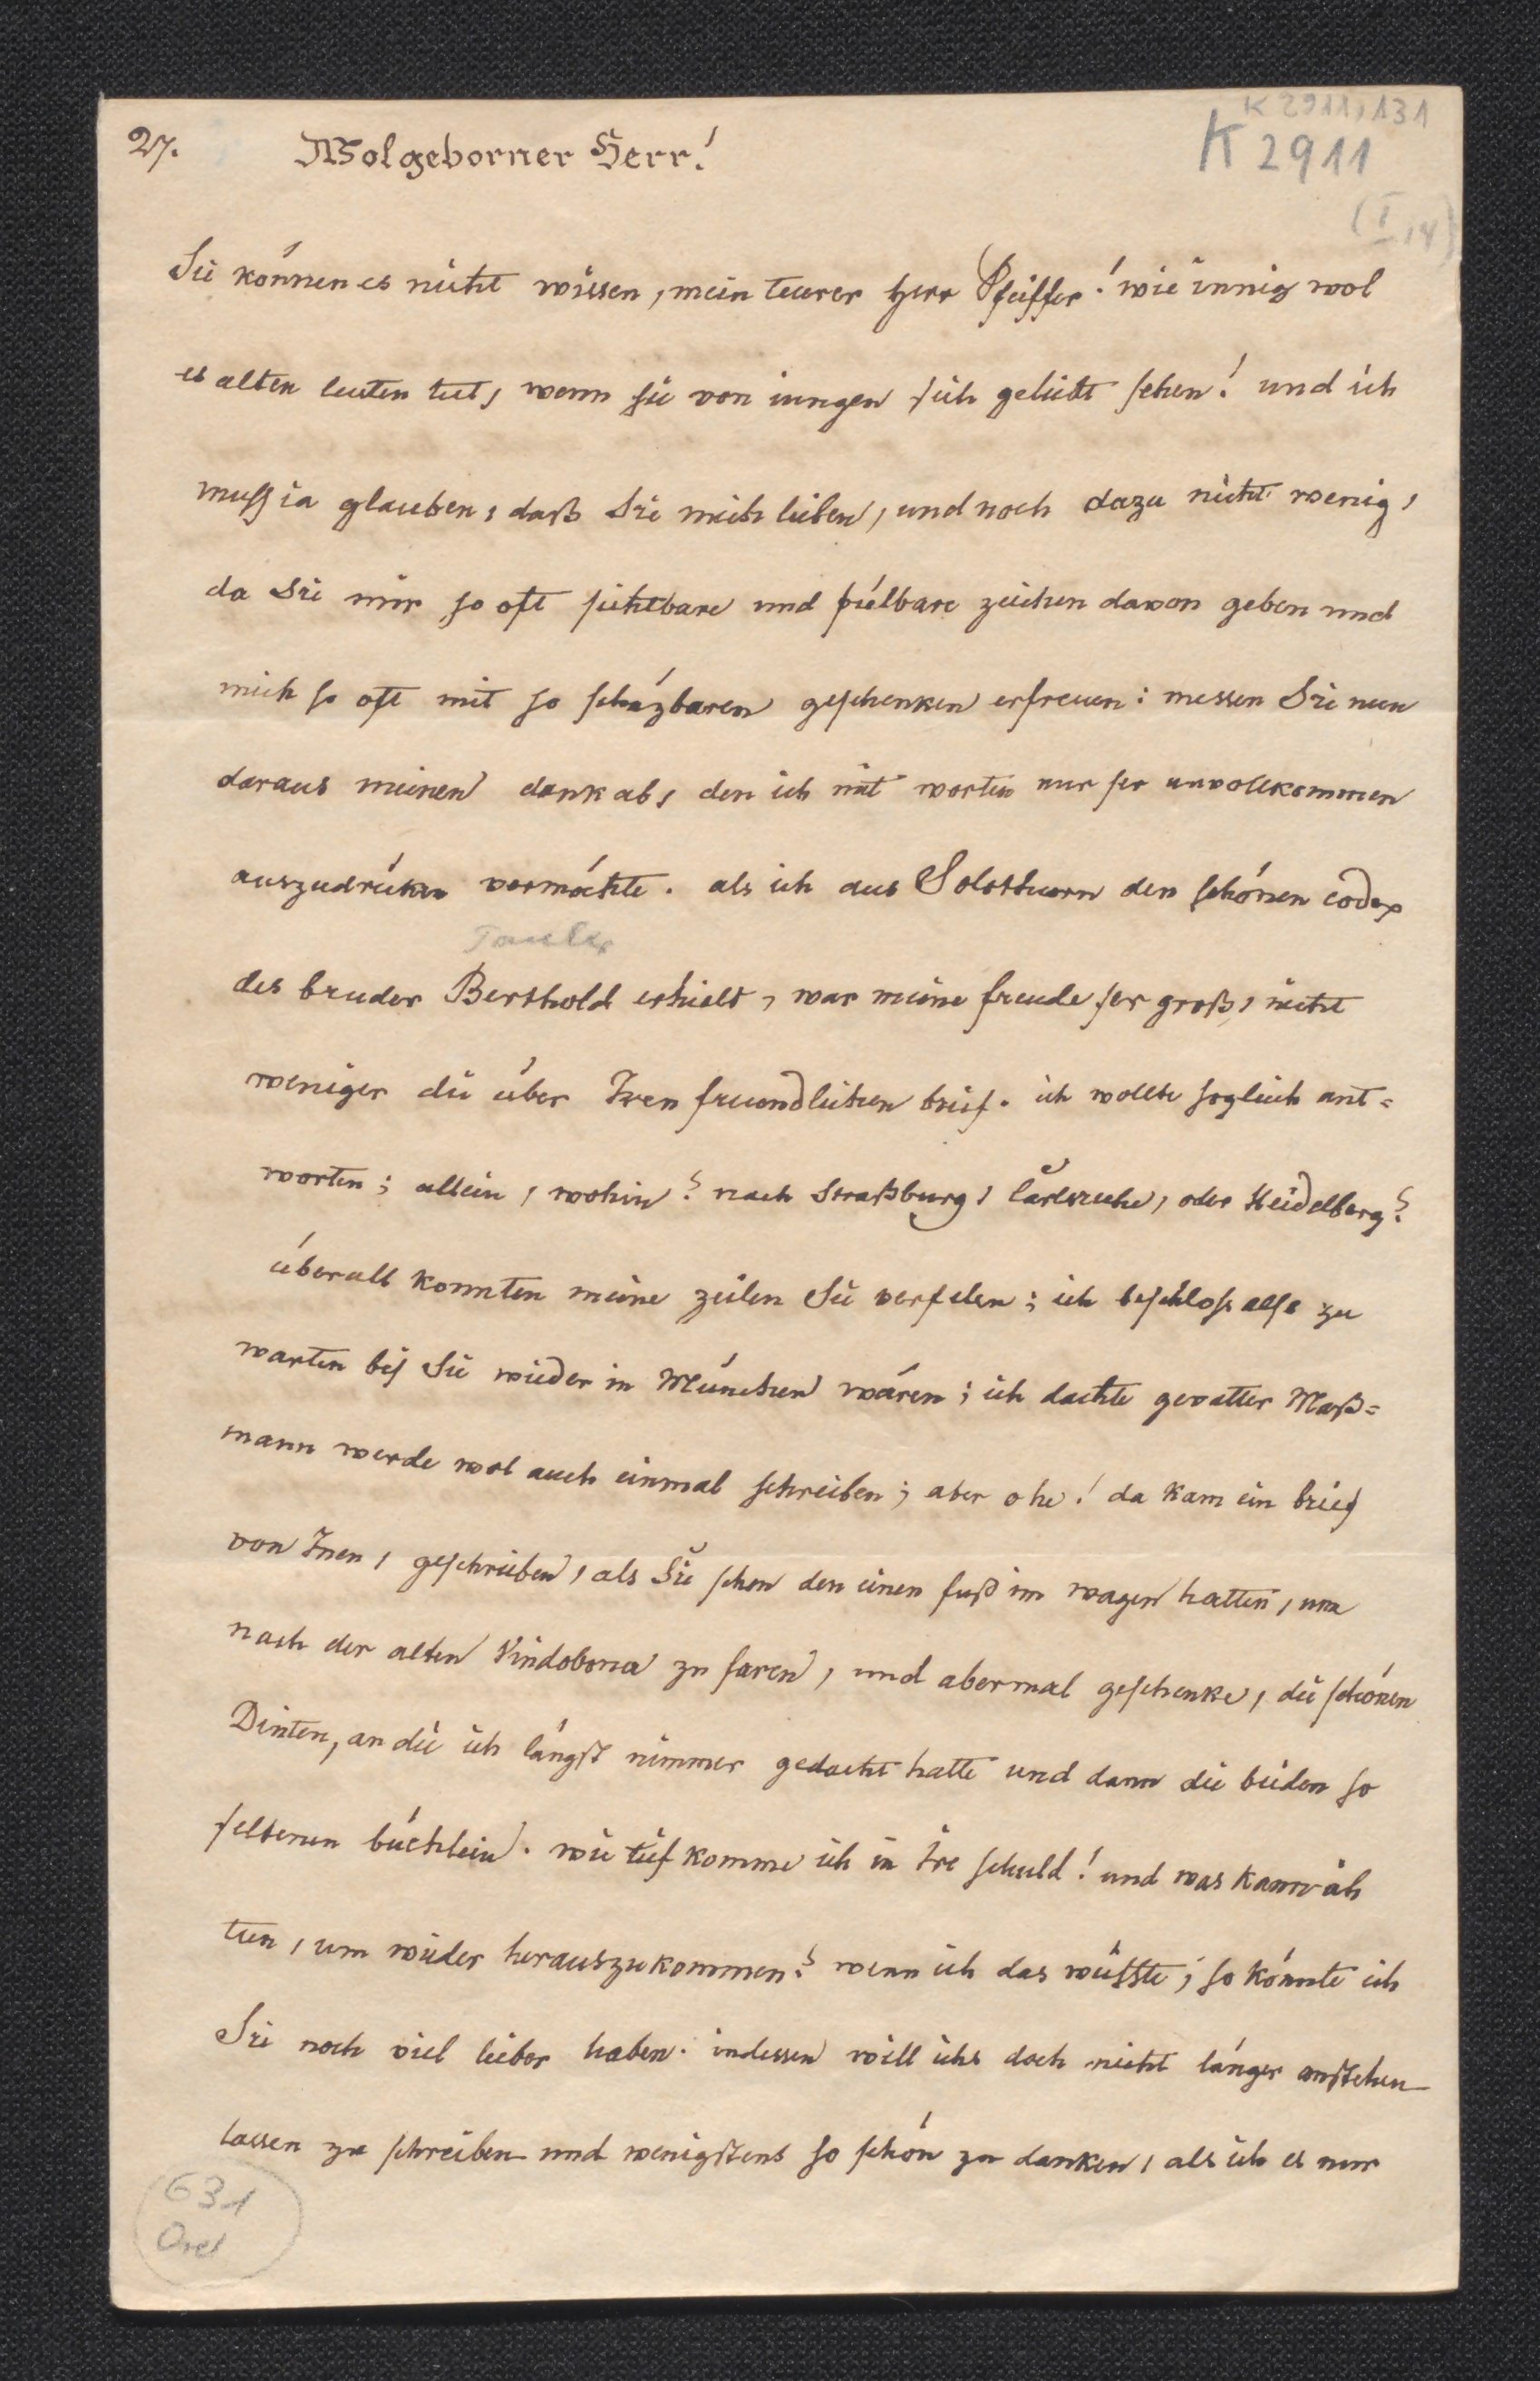 K 2911,131
27. Wolgeborner Herr! K 2911
(I, 14)
Sie können es nicht wissen, mein teurer Herr Pfeiffer! wie innig wol
es alten leuten tut, wenn sie von iungen sich geliebt sehen! und ich
muß ia glauben, daß Sie mich lieben, und noch dazu nicht wenig,
da Sie mir so oft sichtbare und fülbare zeichen davon geben und
mich so oft mit so schäzbaren geschenken erfreuen: messen Sie nun
daraus meinen dank ab, den ich mit worten nur ser unvollkommen
auszudrüken vermöchte. als ich aus Solothurn den schönen codex
des bruder Berthold erhielt, war meine freude ser groß, nicht
weniger die über Iren freundlichen brief. ich wollte sogleich ant=
worten; allein, wohin? nach Straßburg, Carlsruhe, oder Heidelberg?
überall konnten meine zeilen Sie verfelen; ich beschloß also zu
warten bis Sie wieder in München wären; ich dachte gevatter Maß=
mann werde wol auch einmal schreiben; aber ohe! da kam ein brief
von Inen, geschrieben, als Sie schon den einen fuß im wagen hatten, um
nach der alten Vindobona zu faren, und abermal geschenke, die schönen
Dinten, an die ich längst nimmer gedacht hatte und dann die beiden so
seltenen büchlein. wie tief komme ich in Ire schuld! und was kann ich
tun, um wieder herauszukommen? wenn ich das wüßte, so könnte ich
Sie noch viel lieber haben. indessen will ichs doch nicht länger anstehen
lassen zu schreiben und wenigstens so schön zu danken, als ich es nur
631